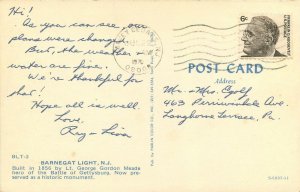 Hi!
As you can see, our
plans were changed.
But, the weather &
water are fine.
We're thankful for
that!
Hope all is well.
Love,
Ray - Lisa
6c
POST CARD
Mr. & Mrs. Cyolf
463 Periwinkle Ave.
Langhorne Terrace, Pa.
BLT-2
BARNEGAT LIGHT, N.J.
Built in 1856 by Lt. George Gordon Meade
hero of the Battle of Gettysburg. Now pre-
served as a historic monument.